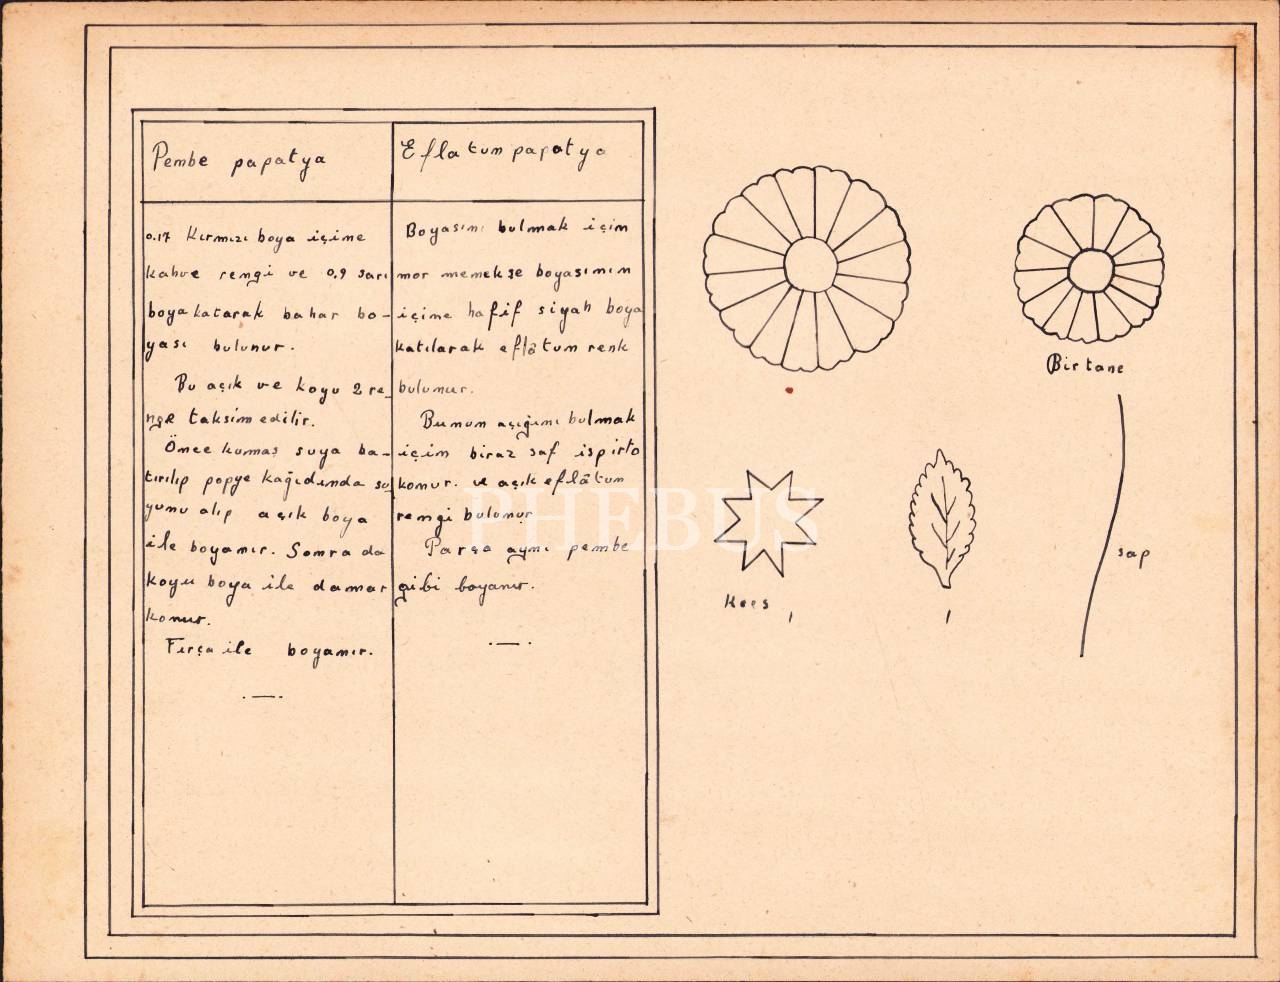 Pembe papatya
0.17 Kırmızı boya içine
kahve rengi ve 0,9 sarı
boya katarak bahar bo-
yası bulunur.
Bu açık ve koyu 2 re-
nge taksim edilir.
Önce kumaş suya ba-
tırılıp papye kağıdında su-
yunu alıp açık boya
ile boyanır. Sonra da
koyu boya ile damar
konur.
Fırça ile boyanır.
Eflatun papatya
Boyasını bulmak için
mor menekşe boyasının
içine hafif siyah boya
katılarak eflâtun renk
bulunur.
Bunun açığını bulmak
için biraz saf ispirto
konur. ve açık eflâtun
rengi bulunur
Parça aynı pembe
gibi boyanır.
Bir tane
sap
PHEBUS